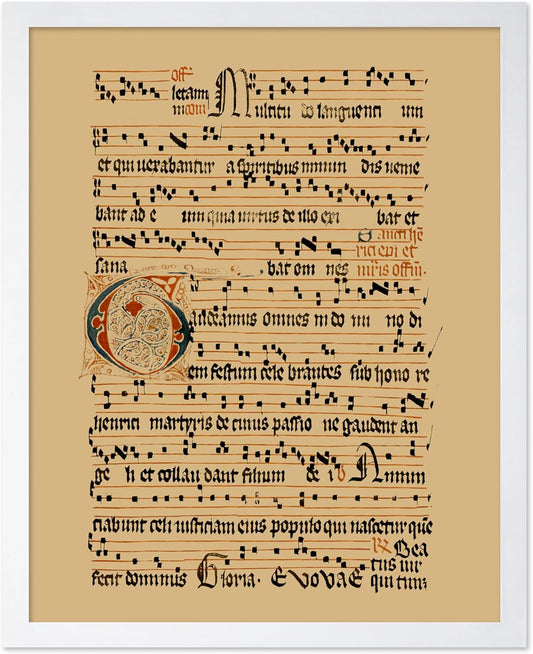 off̄
letamı Multitu do languenti um
m com̄
et qui uexabantur a spiritibus inmun dis uenie
bant ad e um quia uirtus de illo exi bat et
Sancti hē
rici epi et
sana bat om nes mr̄is offm̄.
Gaudeamus omnes in do mi no di
em festum cele brantes sub hono re
henrici martyris de cuius passio ne gaudent an
ge li et collau dant filium de i ƀ Annun
ciabunt celi iusticiam eius populo qui nascetur quē
R̄ Bea
tus uir
fecit dominus Gloria. EVOVAE qui tim̄